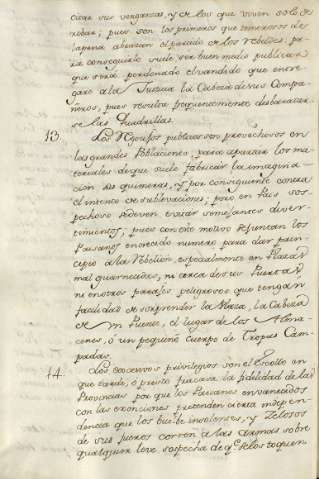 ciar sus venganzas, y de los que viven solo de
robar; pues son los primeros que temerosos de
la pena abultan el partido de los rebeldes; pa-
ra conseguirlo suele ser buen medio publicar
que será perdonado el vandido que entre-
gare a la Justicia la Cabeza de sus Compa-
ñeros, pues resulta frequentemente desbaratar-
se las quadrillas.
13. Los Regocijos publicos son provechosos en
las grandes Poblaciones, para apartar los ma-
teriales de que suele fabricar la imagina-
cion sus quimeras, y por consiguiente contra
el intento de sublevaciones; pero en Pais sos-
pechoso se deven evitar semejantes diver-
timientos, pues con este motivo se juntan los
Paisanos en crecido numero para dar prin-
cipio a la Rebelion, especialmente en Plazas
mal guarnecidas, ni cerca de sus Puertas,
ni en otros parajes peligrosos que tengan
facilidad de sorprender la Plaza, la Cabeza
de un Puente, el lugar de los Alma-
cenes, ò un pequeño Cuerpo de Tropas Cam-
padas.
14. Los excesivos privilegios son el Escollo en
que tarde, ò presto fracasa la fidelidad de las
Provincias por que los Paisanos envanecidos
con las exenciones pretenden cierta indepen-
dencia que los buelbe insolentes, y Zelosos
de sus fueros corren a las armas sobre
qualquiera leve sospecha de q.e se los toquen